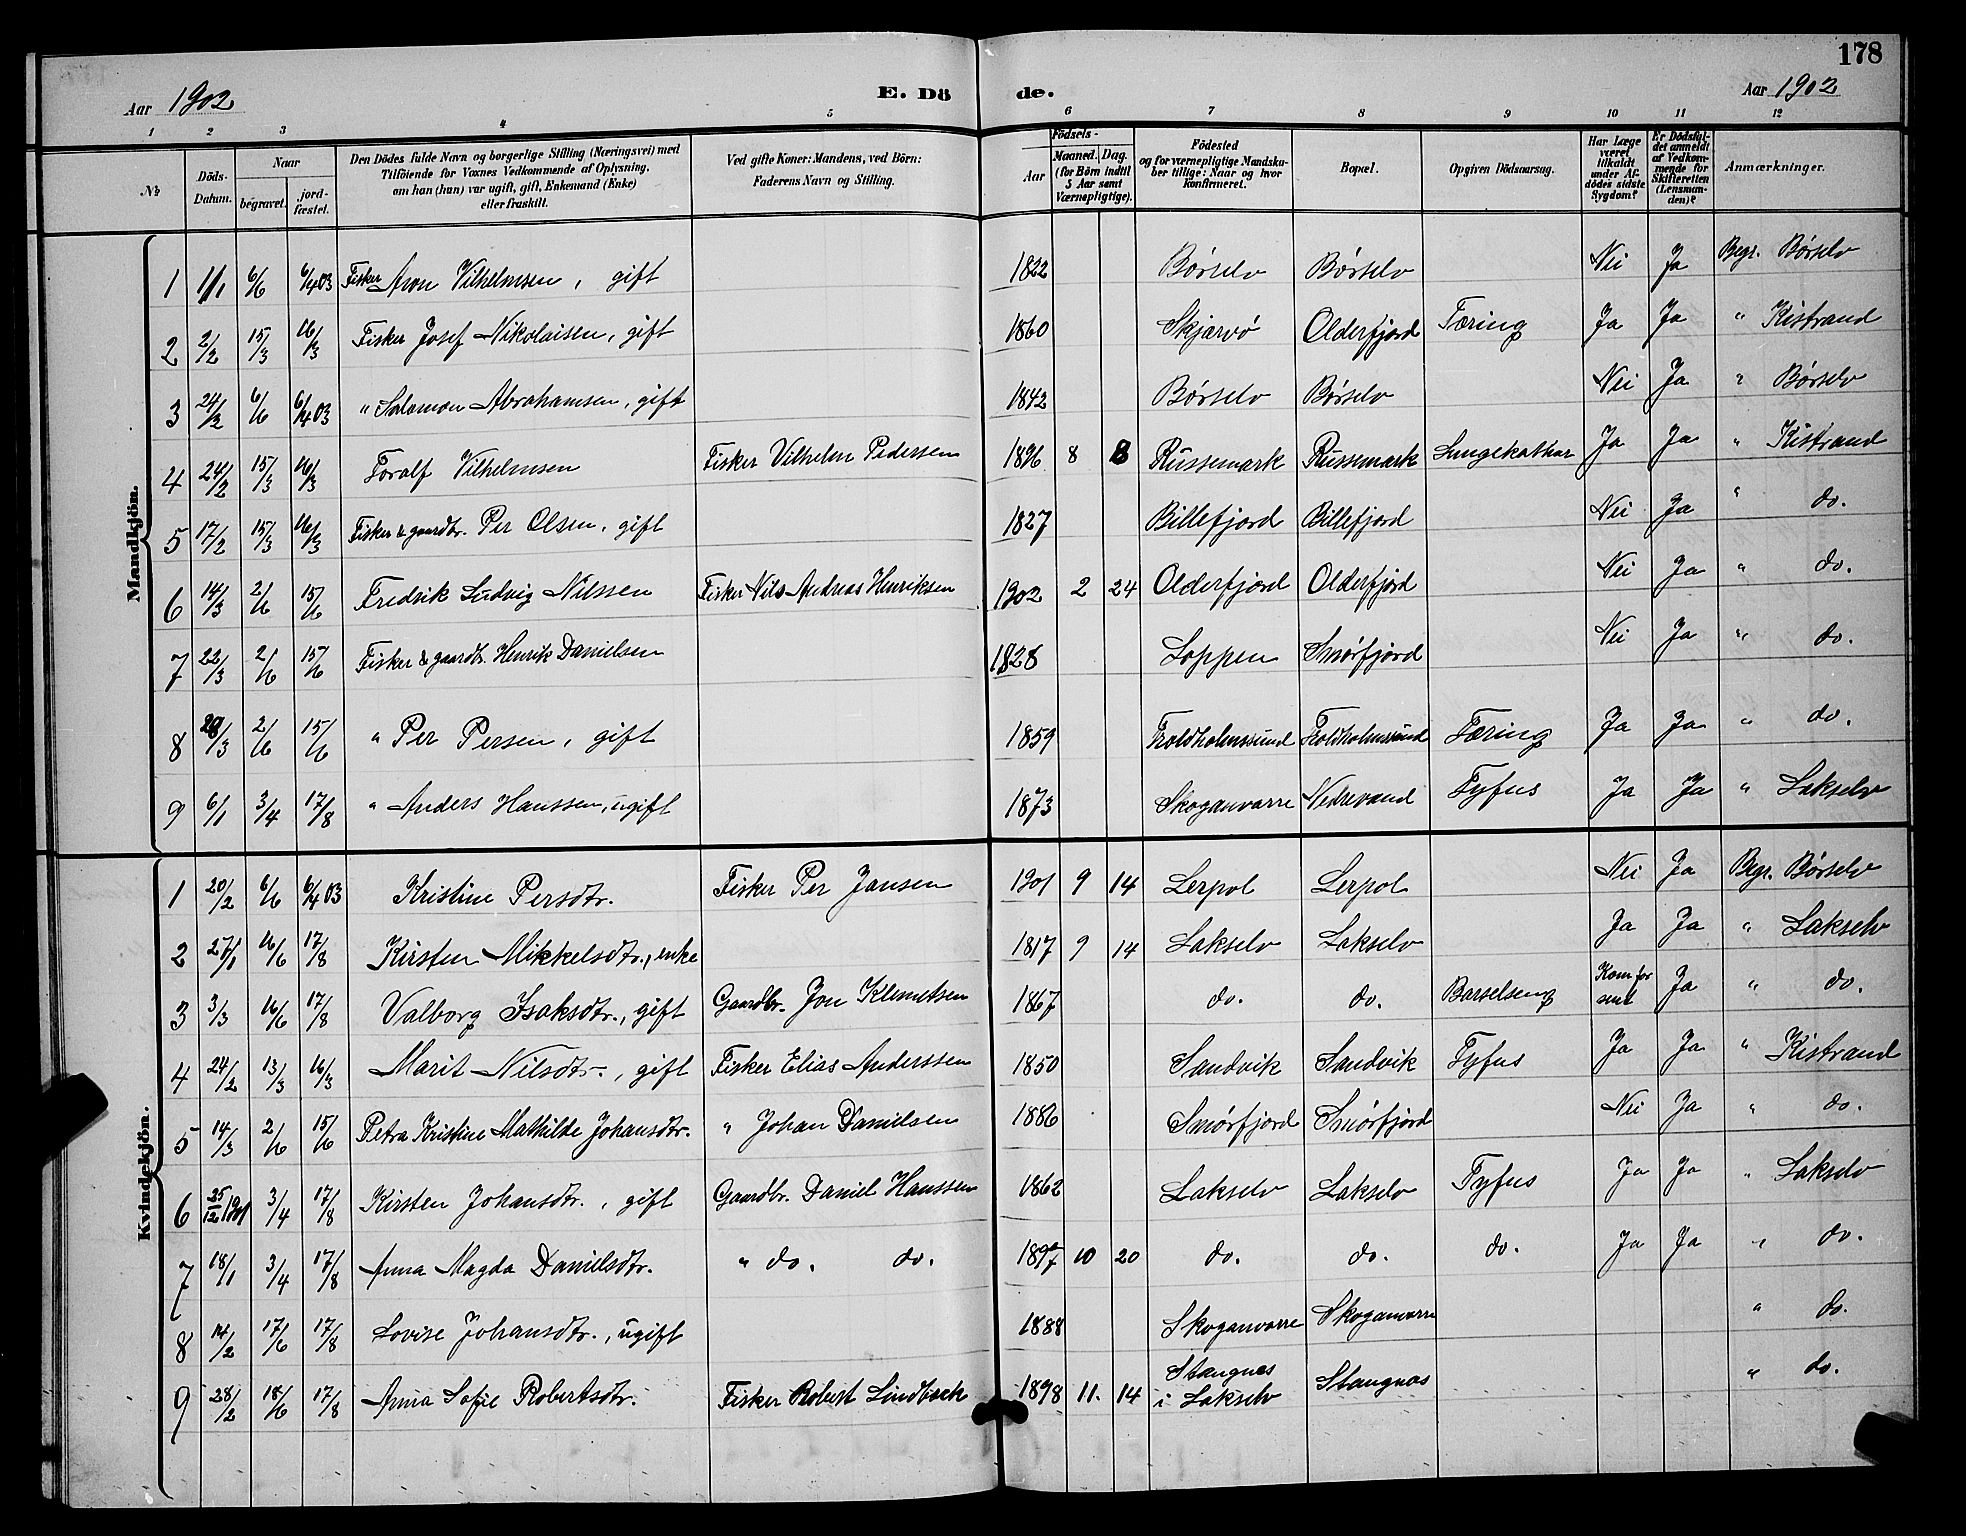 178
Aar 1902 E. Dö de. Aar 1902
1 2 3 4 5 6 7 8 9 10 11 12
№
Döds-Datum.
Naar
begravet.
jord-fæstet.
Den Dödes fulde Navn og borgerlige Stilling (Næringsvei) med
Tilföiende for Voxnes Vedkommende af Oplysning,
om han (hun) var ugift, gift, Enkemand (Enke)
eller fraskilt.
Ved gifte Koner: Mandens, ved Börn:
Faderens Navn og Stilling.
Födsels-
Aar
Maaned. Dag.
(for Börn indtil
5 Aar samt
Værnepligtige).
Födested
og for værnepligtige Mandska-
ber tillige: Naar og hvor
konfirmeret.
Bopæl.
Opgiven Dödsaarsag.
Har Læge
været
tilkaldt
under Af-
dödes sidste
Sygdom?
Er Dödsfal-
det anmeldt
af Vedkom-
mende for
Skifteretten
(Lensman-
den)?
Anmærkninger.
Mandkjön.
1 1/1 6/6 6/4 03 Fisker Aron Vilhelmsen, gift 1822 Børselv Børselv Nei Ja Begr. Børselv
2 2/2 15/3 16/3 Fisker Josef Nikolaisen, gift 1860 Skjærvö Olderfjord Tæring Ja Ja " Kistrand
3 24/2 6/6 6/4 03 " Salomon Abrahamsen, gift 1842 Børselv Børselv Nei Ja " Børselv
4 24/2 15/3 16/3 Toralf Vilhelmsen Fisker Vilhelm Pedersen 1896 8 8 Russemark Russemark Lungekathar Ja Ja " Kistrand
5 17/2 15/3 16/3 Fisker & gaardbr. Per Olsen, gift 1827 Billefjord Billefjord Nei Ja " do.
6 14/3 2/6 15/6 Fredrik Ludvig Nilssen Fisker Nils Andreas Henriksen 1902 2 24 Olderfjord Olderfjord Nei Ja " do.
7 22/3 2/6 15/6 Fisker & gaardbr. Henrik Danielsen 1828 Loppen Smørfjord Nei Ja " do.
8 28/3 2/6 15/6 " Per Persen, gift 1859 Troldholmssund Troldholmssund Tæring Ja Ja " do.
9 6/1 3/4 17/8 " Anders Hanssen, ugift 1873 Skoganvarre Nedrevand Tyfus Ja Ja " Lakselv
Kvindekjön.
1 20/2 6/6 6/4 03 Kristine Persdtr. Fisker Per Jansen 1901 9 14 Lerpol Lerpol Nei Ja Begr. Børselv
2 27/1 16/6 17/8 Kirsten Mikkelsdtr., enke 1817 9 14 Lakselv Lakselv Ja Ja " Lakselv
3 3/3 16/6 17/8 Valborg Isaksdtr., gift Gaardbr. Jon Klemetsen 1867 do. do. Barselseng Kom for sent Ja " do.
4 24/2 13/3 16/3 Marit Nilsdtr., gift Fisker Elias Anderssen 1850 Sandvik Sandvik Tyfus Ja Ja " Kistrand
5 14/3 2/6 15/6 Petra Kristine Mathilde Johansdtr. " Johan Danielsen 1886 Smørfjord Smørfjord Nei Ja " do.
6 25/12 1901 3/4 17/8 Kirsten Johansdtr., gift Gaardbr. Daniel Hanssen 1862 Lakselv Lakselv Tyfus Ja Ja " Lakselv
7 18/1 3/4 17/8 Anna Magda Danielsdtr. " do. do. 1897 10 20 do. do. do. Ja Ja " do.
8 14/2 17/6 17/8 Lovise Johansdtr., ugift 1888 Skoganvarre Skoganvarre " do.
9 28/2 18/6 17/8 Anna Sofie Robertsdtr. Fisker Robert Lindbach 1898 11. 14 Stangnes i Lakselv Stangnes " do.